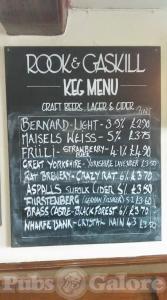 ROOK & GASKILL
KEG MENU
CRAFT BEERS, LAGER & CIDER
PINT
BERNARD-LIGHT - 3.9% £2.90
MAISELS WEISS - 5% £3.75
FRÜLI - STRAWBERRY 4.1% £4.90
GREAT YORKSHIRE - YORKSHIRE LAVENDER £3.50
RAT BREWERY - CRAZY RAT 6% £3.70
ASPALLS SUFFOLK CIDER 5% £3.50
FURSTENBERG (GERMAN PILSNER) 5% £3.60
BRASS CASTLE - BLACK FOREST 6% £3.70
WHARFE BANK - CRYSTAL RAIN 4.3 £3.50
Pubs Galore